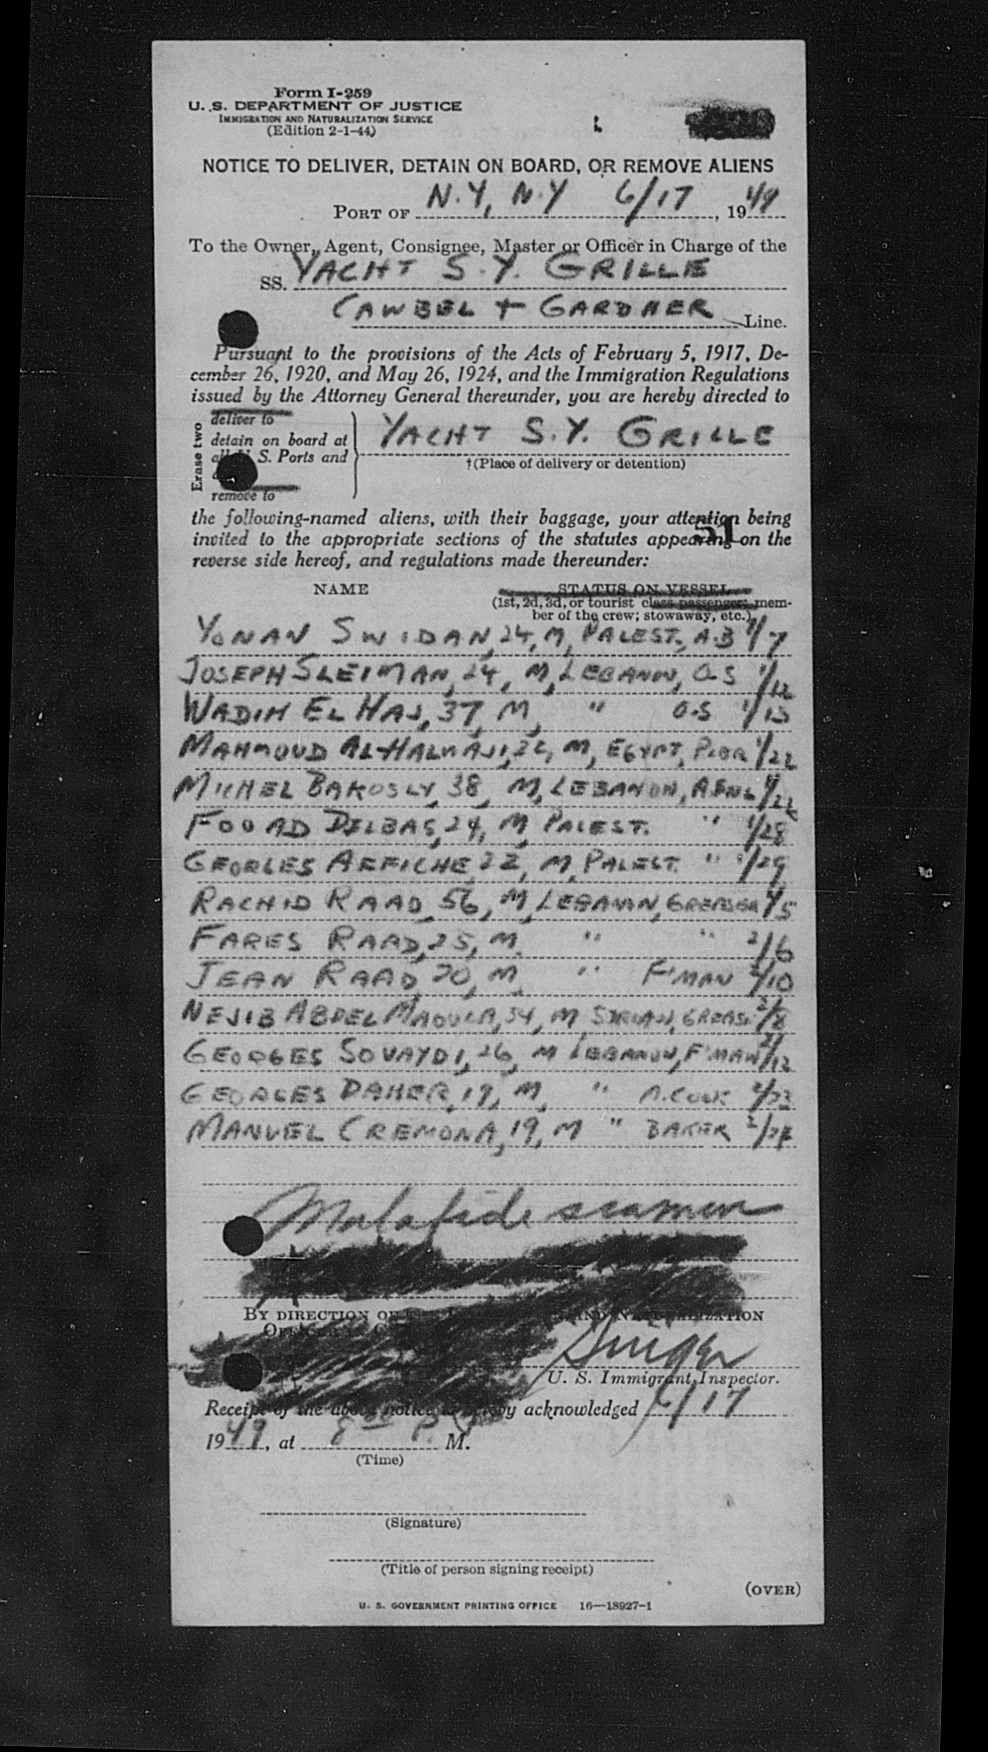 Form I-259
U. S. DEPARTMENT OF JUSTICE
IMMIGRATION AND NATURALIZATION SERVICE
(Edition 2-1-44)
NOTICE TO DELIVER, DETAIN ON BOARD, OR REMOVE ALIENS
PORT OF N.Y, N.Y 6/17, 1949
To the Owner, Agent, Consignee, Master or Officer in Charge of the
SS. YACHT S.Y. GRILLE
CAWBEL + GARDNER Line.
Pursuant to the provisions of the Acts of February 5, 1917, De-
cember 26, 1920, and May 26, 1924, and the Immigration Regulations
issued by the Attorney General thereunder, you are hereby directed to
Erase two
deliver to
detain on board at
all U S. Ports and
remove to
YACHT S.Y. GRILLE
†(Place of delivery or detention)
the following-named aliens, with their baggage, your attention being
invited to the appropriate sections of the statutes appearing on the
reverse side hereof, and regulations made thereunder:
51
NAME STATUS ON VESSEL
(1st, 2d, 3d, or tourist class passenger; mem-
ber of the crew; stowaway, etc.)
YONAN SWIDAN, 24, M, PALEST., A.B 1/7
JOSEPH SLEIMAN, 24, M, LEBANON, O.S 1/12
WADIH EL HAJ, 37, M, " O.S 1/13
MAHMOUD AL-HALWAJI, 22, M, EGYPT, 1/22
MICHEL BAKOSLY, 38, M, LEBANON, 1/22
FOOAD DELBAS, 24, M, PALEST. " 1/28
GEORGES AFFICHE, 22, M, PALEST. " 1/29
RACHID RAAD, 56, M, LEBANON, GREASER 2/5
FARES RAAD, 25, M. " " 2/6
JEAN RAAD, 20, M, " F'MAN 2/10
NEJIB ABDEL MAOULA, 34, M, SYRIAN, GREASE 2/8
GEORGES SOVAYDI, 26, M LEBANON, F'MAN 2/12
GEORGES DAHER, 19, M, " A.COOK 2/23
MANUEL CREMONA, 19, M " BAKER
Malafide seamen
BY DIRECTION OF AND NATURALIZATION
U. S. Immigrant Inspector.
Receipt of the above notice is hereby acknowledged 6/17
1949, at 8 P. M.
(Time)
(Signature)
(Title of person signing receipt)
(OVER)
U. S. GOVERNMENT PRINTING OFFICE 16—18927-1